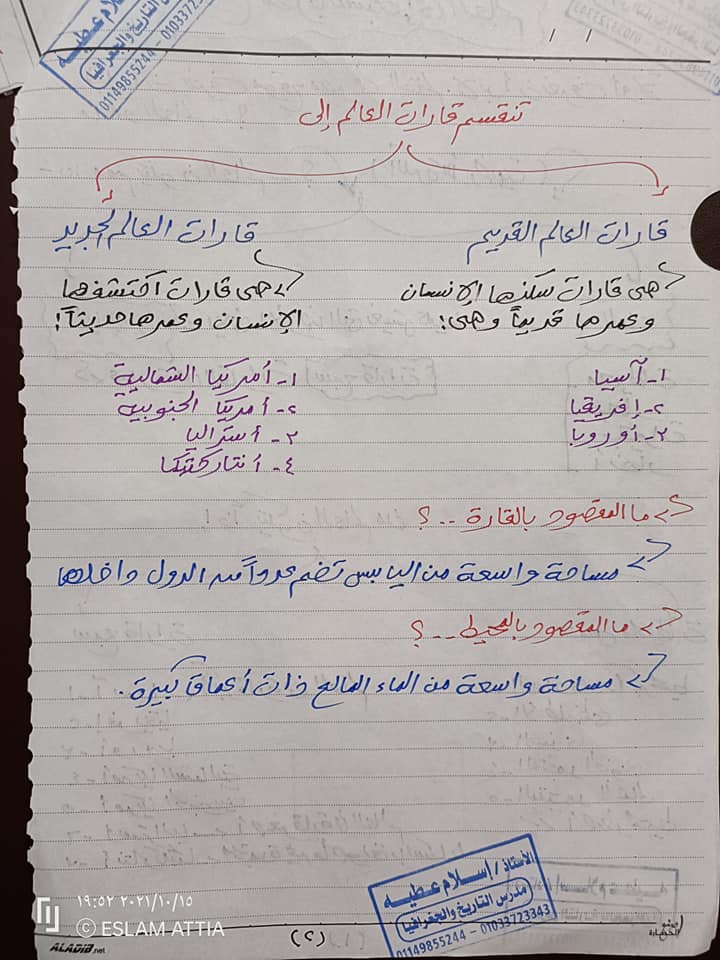 إسلام عطيه
مدرس التاريخ والجغرافيا
01149855244 - 01033723343
تنقسم قارات العالم إلى
قارات العالم القديم
هى قارات سكنها الإنسان
وعمرها قديماً وهى:
١- آسيا
٢- إفريقيا
٣- أوروبا
قارات العالم الجديد
هى قارات اكتشفها
الإنسان وعمرها حديثاً:
١- أمريكا الشمالية
٢- أمريكا الجنوبية
٣- أستراليا
٤- أنتاركتيكا
ما المقصود بالقارة ..؟
مساحة واسعة من اليابس تضم عدداً من الدول داخلها
ما المقصود بالمحيط ..؟
مساحة واسعة من الماء المالح ذات أعماق كبيرة.
الأستاذ / إسلام عطيه
مدرس التاريخ والجغرافيا
01149855244 - 01033723343
٢٠٢١/١٠/١٥ ١٩:٥٢
© ESLAM ATTIA
ALADIB.net
(٢)